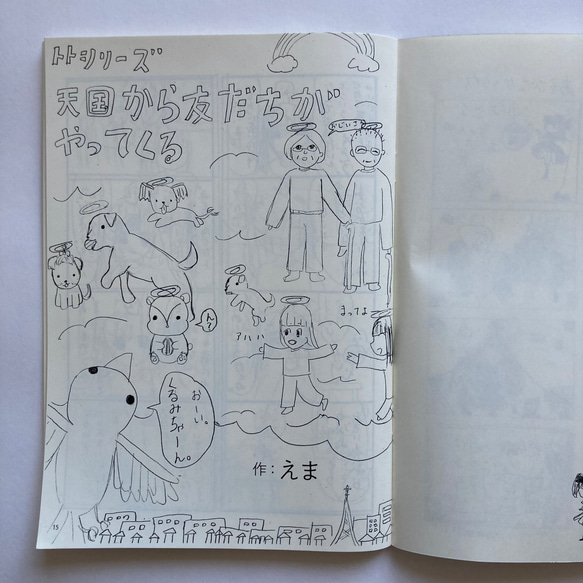 トトシリーズ
天国から友だちが
やってくる
おじいさん
ん?
まってよ
アハハ
おーい。
くるみちゃーん。
作:えま
15